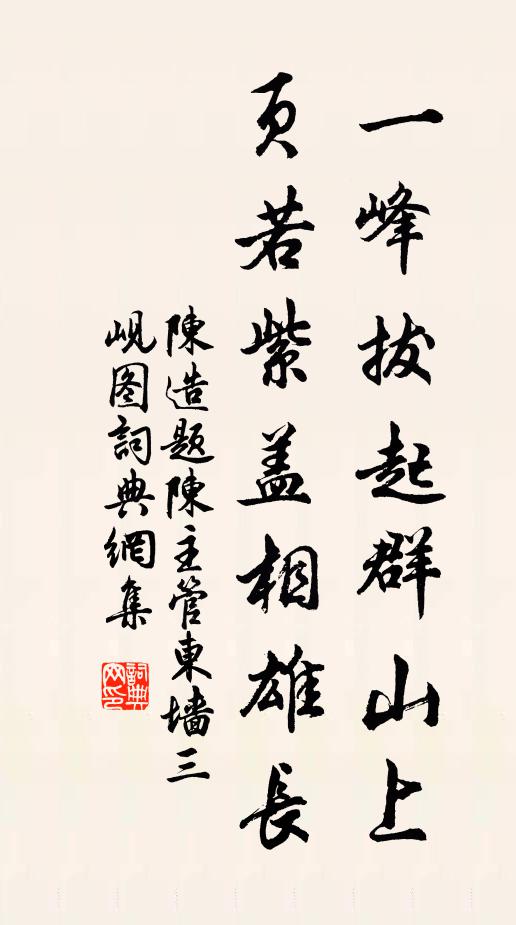 一峰拔起群山上
頁若紫盖相雄長
陳造題陳主管東墻三
峴图詞典網集
詞典
网印